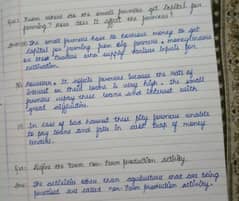 Que: From where do the small farmers get capital for
farming? How does it affect the farmers?
Ans: The small farmers have to borrow money to get
capital for farming from big farmers, moneylenders
or the traders who supply various inputs for
cultivation.
However, it affects farmers because the rate of
interest on these loans is very high. the small
farmers repay these loans and interest with
great difficulties.
In case of bad harvest these
farmers unable
to pay loans and falls in debt trap of money
lenders.
Que: Define the term non-farm production activity.
Ans: The activities other than agriculture that are being
practised are called non-farm production activity.